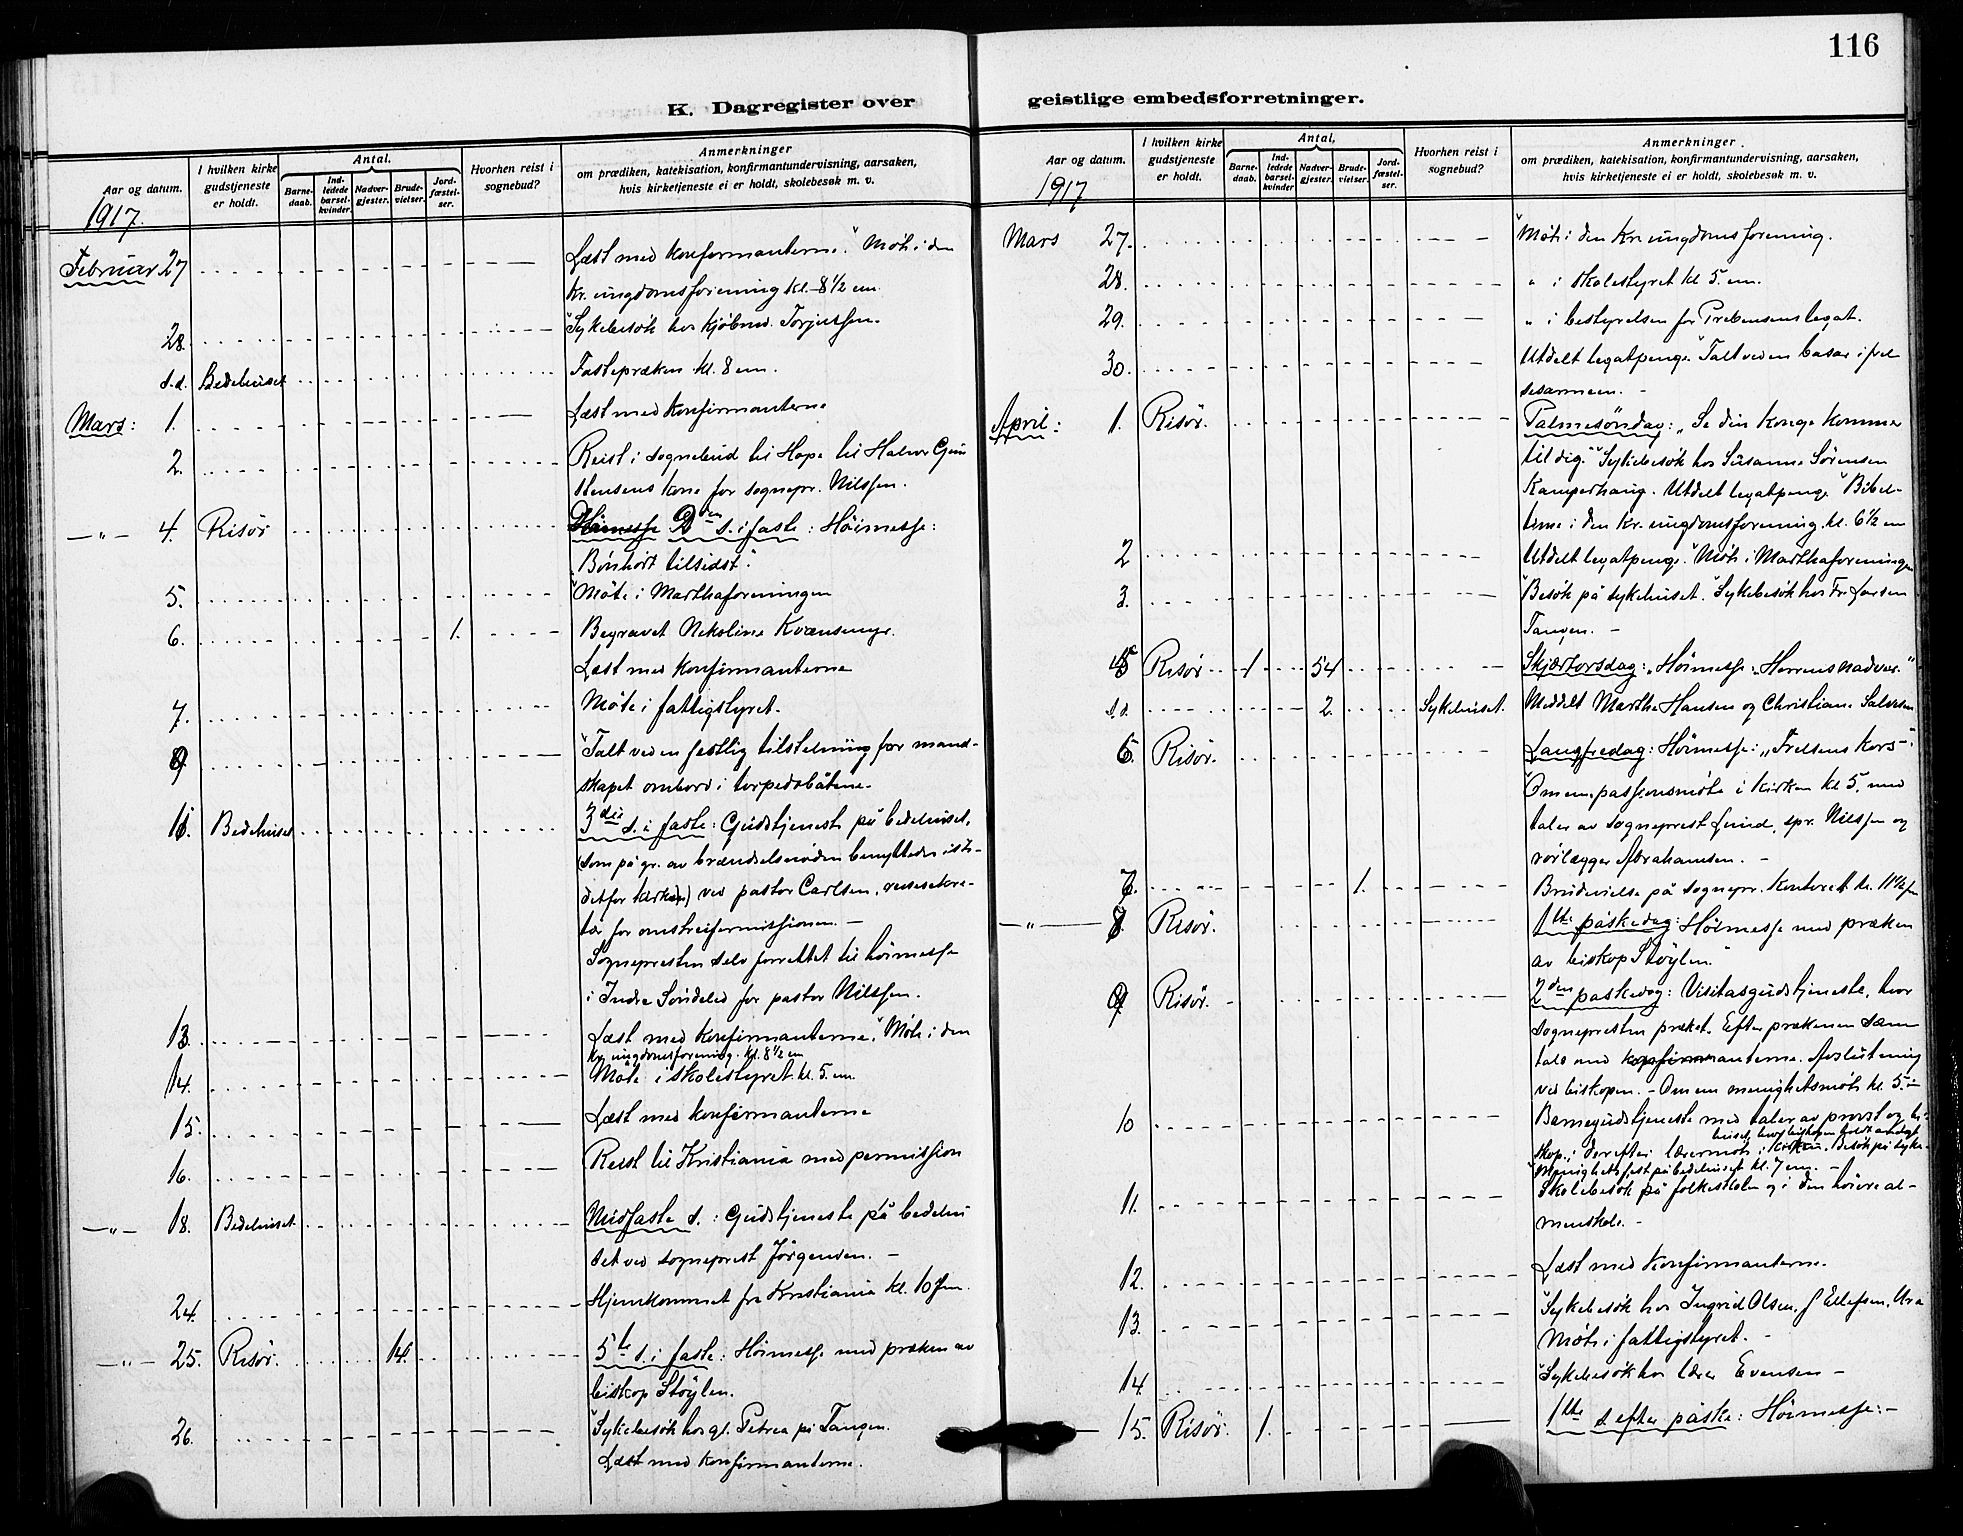 116
K. Dagregister over
geistlige embedsforretninger.
Aar og datum.
I hvilken kirke gudstjeneste er holdt.
Antal.
Barnedaab.
Indledede barselkvinder.
Nadvergjester.
Brudevielser.
Jordfæstelser.
Hvorhen reist i sognebud?
Anmerkninger
om prædiken, katekisation, konfirmantundervisning, aarsaken,
hvis kirketjeneste ei er holdt, skolebesøk m. v.
1917.
Februar 27 Læst med konfirmanterne. Møte i den
kr. ungdomsforening kl. 8 1/2 em.
28. Sykebesøk hos kjøbmd. Torjussen.
s.d. Bedehuset Fastepræken kl. 8 em.
Mars: 1. Læst med konfirmanterne
2. Reist i sognebud til Hope til Halvor Gun
stensens kone for sognepr. Nilssen.
— " — 4. Risør 2den s. i faste: Høimesse:
"Bønhørt tilsidst".
5. Møte i Marthaforeningen
6. 1. Begravet Nikoline Kvænsmyr.
Læst med konfirmanterne
7. Møte i fattigstyret.
9 Talt ved en festlig tilstelning for mand-
skapet ombord i torpedobåtene.
11. Bedehuset 3die s. i faste: Gudstjeneste på bedehuset,
(som på gr. av brændselsnøden benyttedes iste-
detfor kirken) ved pastor Carlsen, reisesekre-
tær for omstreifermissionen. —
Sognepresten selv forrettet til høimesse
i Indre Søndeled for pastor Nilssen.
13. Læst med konfirmanterne. Møte i den
kr. ungdomsforening. kl. 8 1/2 em
14. Møte i skolestyret. kl. 5. em.
15. Læst med konfirmanterne
16. Reist til Kristiania med permission
— " — 18. Bedehuset Midfaste s.: Gudstjeneste på bedehu
set ved sogneprest Jørgensen. —
24. Hjemkommet fra Kristiania kl. 10 fm.
— " — 25. Risør. 14. 5te s. i faste: Høimesse med præken av
biskop Støylen.
26. Sykebesøk hos gl. Petrea på Tangen.
Læst med konfirmanterne.
Aar og datum.
I hvilken kirke gudstjeneste er holdt.
Antal.
Barnedaab.
Indledede barselkvinder
Nadvergjester.
Brudevielser.
Jordfæstelser.
Hvorhen reist i sognebud?
Anmerkninger.
om prædiken, katekisation, konfirmantundervisning, aarsaken,
hvis kirketjeneste ei er holdt, skolebesøk m. v.
1917
Mars 27. Møte i den kr. ungdomsforening.
28. " i skolestyret kl 5. em.
29. " i bestyrelsen for Prebensens legat.
30. Utdelt legatpenge. Talt ved en basar i frel
sesarmeen. —
April: 1. Risør. Palmesøndag: "Se din konge kommer
til dig." Sykebesøk hos Susanne Sørensen
Kamperhaug. Utdelt legatpenge. Bibel-
time i den kr. ungdomsforening. kl. 6 1/2 em
2 Utdelt legatpenge. Møte i Marthaforeningen
3. Besøk på sykehuset. Sykebesøk hos Fr. Larsen
Tangen. —
5 Risør 1 54 Skjærtorsdag: Høimesse: "Herrens nadver."
s.d. 2. Sykehuset. Meddelt Marthe Hansen og Christiane Salvesen
6. Risør. Langfredag: Høimesse: "Frelserens kors".
Om em. passionsmøte i kirken kl 5. med
taler av sogneprest Lund, spr. Nilssen og
rørlægger Abrahamsen. —
7. 1. Brudevielse på sognepr. kontoret kl. 11 1/2 fm
— " — 8. Risør. 1ste påskedag: Høimesse med præken
av biskop Støylen.
9 Risør. 2den påskedag: Visitasgudstjeneste, hvor
sognepresten præket. Efter prækenen sam
tale med konfirmanterne. Avslutning
ved biskopen. — Om em menighetsmøte kl. 5. —
10 Barnegudstjeneste med taler av prost og bi-
skop; derefter lærermøte i kirken. Besøk på syke-
huset, hvor biskopen holdt andagt.
Menighetsfest på bedehuset kl. 7 em. —
11. Skolebesøk på folkeskolen og i den høiere al-
menskole. —
12. Læst med konfirmanterne.
13. Sykebesøk hos Ingrid Olsen, J Ellefsen, Ura
Møte i fattigstyret. —
14 Sykebesøk hos lærer Evensen —
15. Risør. 1. 1ste s efter påske: Høimesse: —